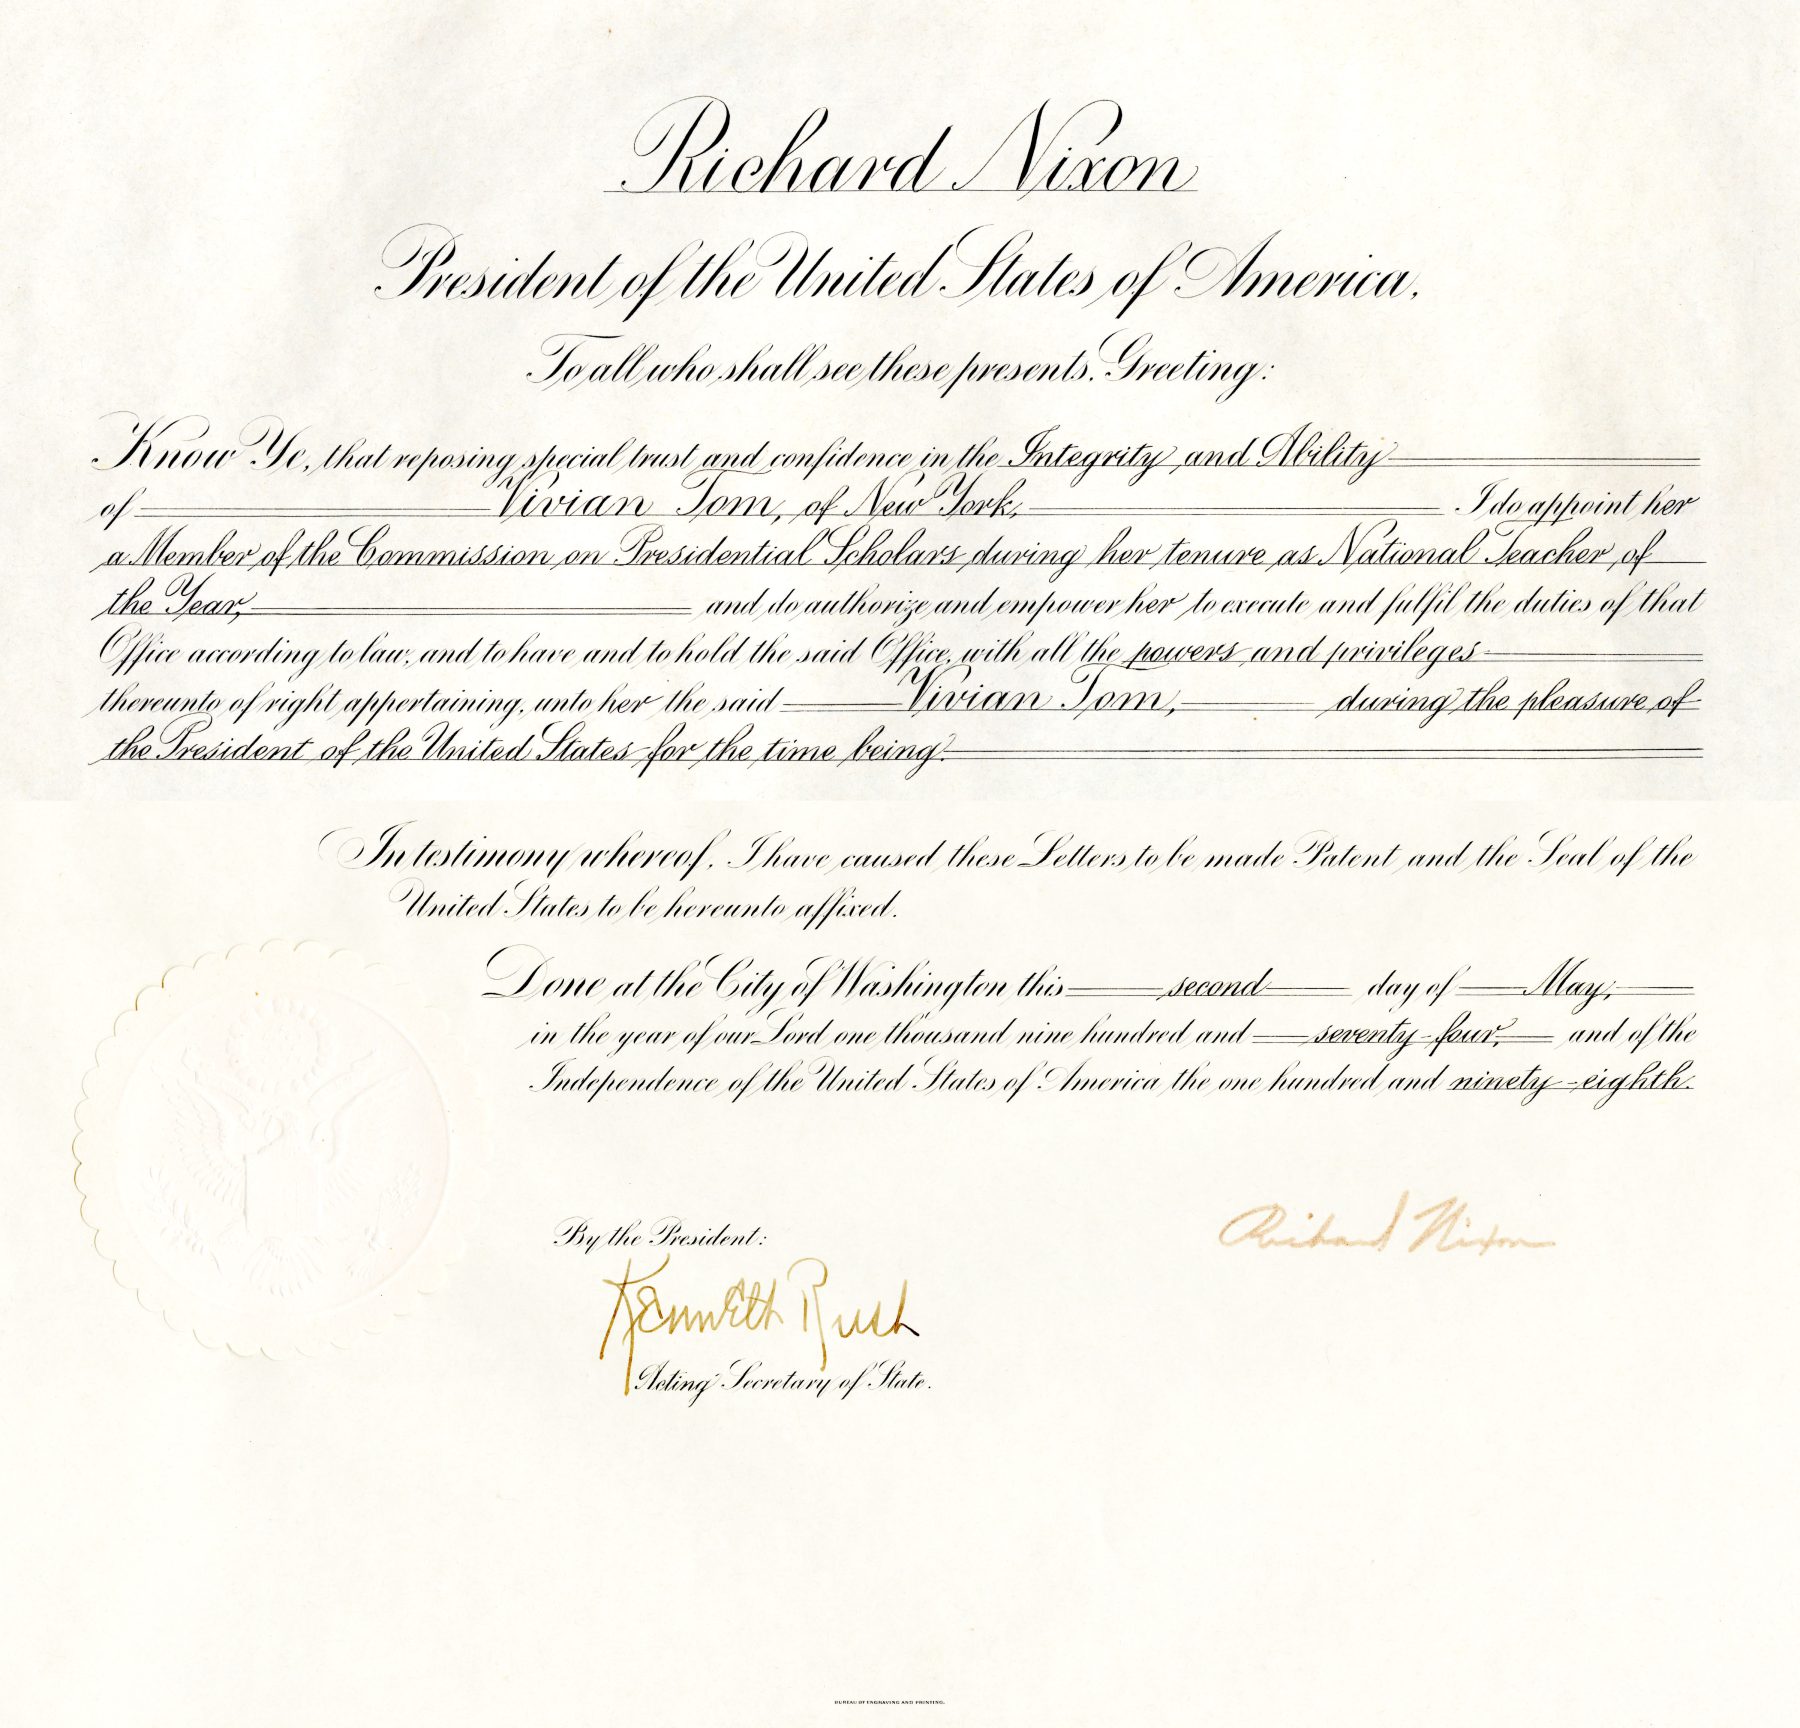 Richard Nixon
President of the United States of America.
To all who shall see these presents. Greeting:
Know Ye, that reposing special trust and confidence in the Integrity and Ability
of Vivian Tom, of New York, I do appoint her
a Member of the Commission on Presidential Scholars during her tenure as National Teacher of
the Year, and do authorize and empower her to execute and fulfil the duties of that
Office according to law, and to have and to hold the said Office, with all the powers and privileges
thereunto of right appertaining, unto her the said Vivian Tom, during the pleasure of
the President of the United States for the time being.
In testimony whereof, I have caused these Letters to be made Patent and the Seal of the
United States to be hereunto affixed.
Done at the City of Washington this second day of May,
in the year of our Lord one thousand nine hundred and seventy-four, and of the
Independence of the United States of America the one hundred and ninety-eighth.
Richard Nixon
By the President:
Kenneth Rush
Acting Secretary of State.
BUREAU OF ENGRAVING AND PRINTING.